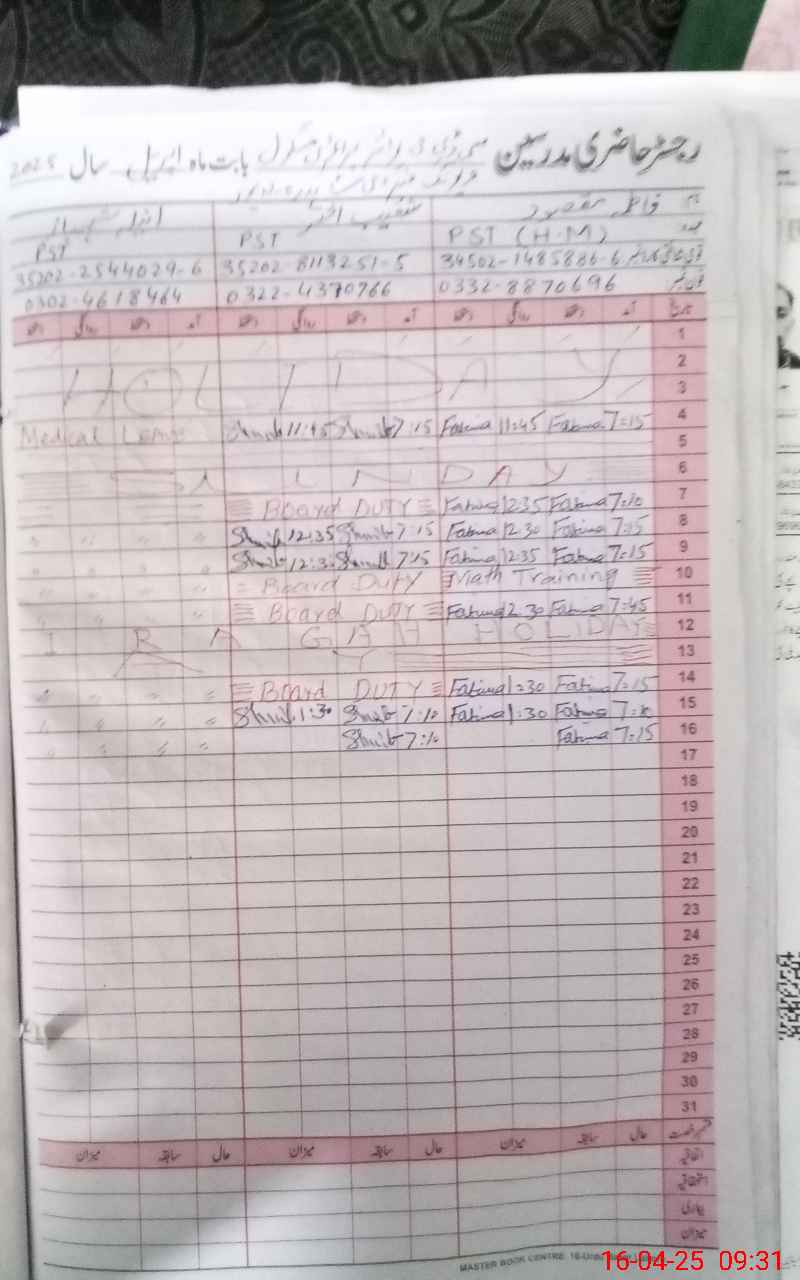 رجسٹر حاضری مدرسین سی ڈی جی پرائمری سکول بابت ماہ اپریل سال 2025
نام فاطمہ مقصود شعیب اختر
عہدہ PST (H.M) PST PST
34502-1485886-6 35202-8113251-5 35202-2544029-6
فون نمبر 0332-8870696 0322-4370766 0302-4618464
تاریخ آمد دستخط روانگی دستخط آمد دستخط روانگی دستخط آمد دستخط روانگی دستخط
1
2 HOLIDAY
3
4 Fatima 7:15 Fatima 11:45 Shuib 7:15 Shuib 11:45 Medical Leave
5
6 SUNDAY
7 Fatima 7:10 Fatima 12:35 Board DUTY
8 Fatima 7:15 Fatima 12:30 Shuib 7:15 Shuib 12:35 " " " "
9 Fatima 7:15 Fatima 12:35 Shuib 7:15 Shuib " " " "
10 Math Training Board Duty " " " "
11 Fatima 7:45 Fatima 12:30 Board DUTY " " " "
12 HOLIDAY
13
14 Fatima 7:15 Fatima 1:30 Board DUTY " " " "
15 Fatima Fatima 1:30 Shuib 7:10 Shuib 1:30 " " " "
16 Fatima 7:15 Shuib 7:10 " " " "
17
18
19
20
21
22
23
24
25
26
27
28
29
30
31
قسم رخصت حال سابقہ میزان حال سابقہ میزان حال سابقہ میزان
اتفاقیہ
استحقاقیہ
بیماری
میزان
MASTER BOOK CENTRE 16-Urdu
16-04-25 09:31